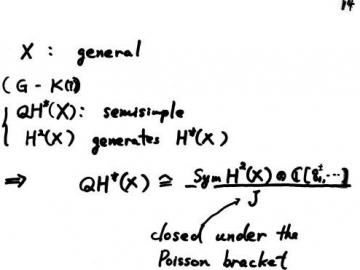 14
X : general
(G - K(?)
QH*(X): semisimple
H²(X) generates H*(X)
⇒ QH*(X) ≅ Sym H²(X) ⊗ ℂ[[q₁,⋯]]
J
closed under the
Poisson bracket